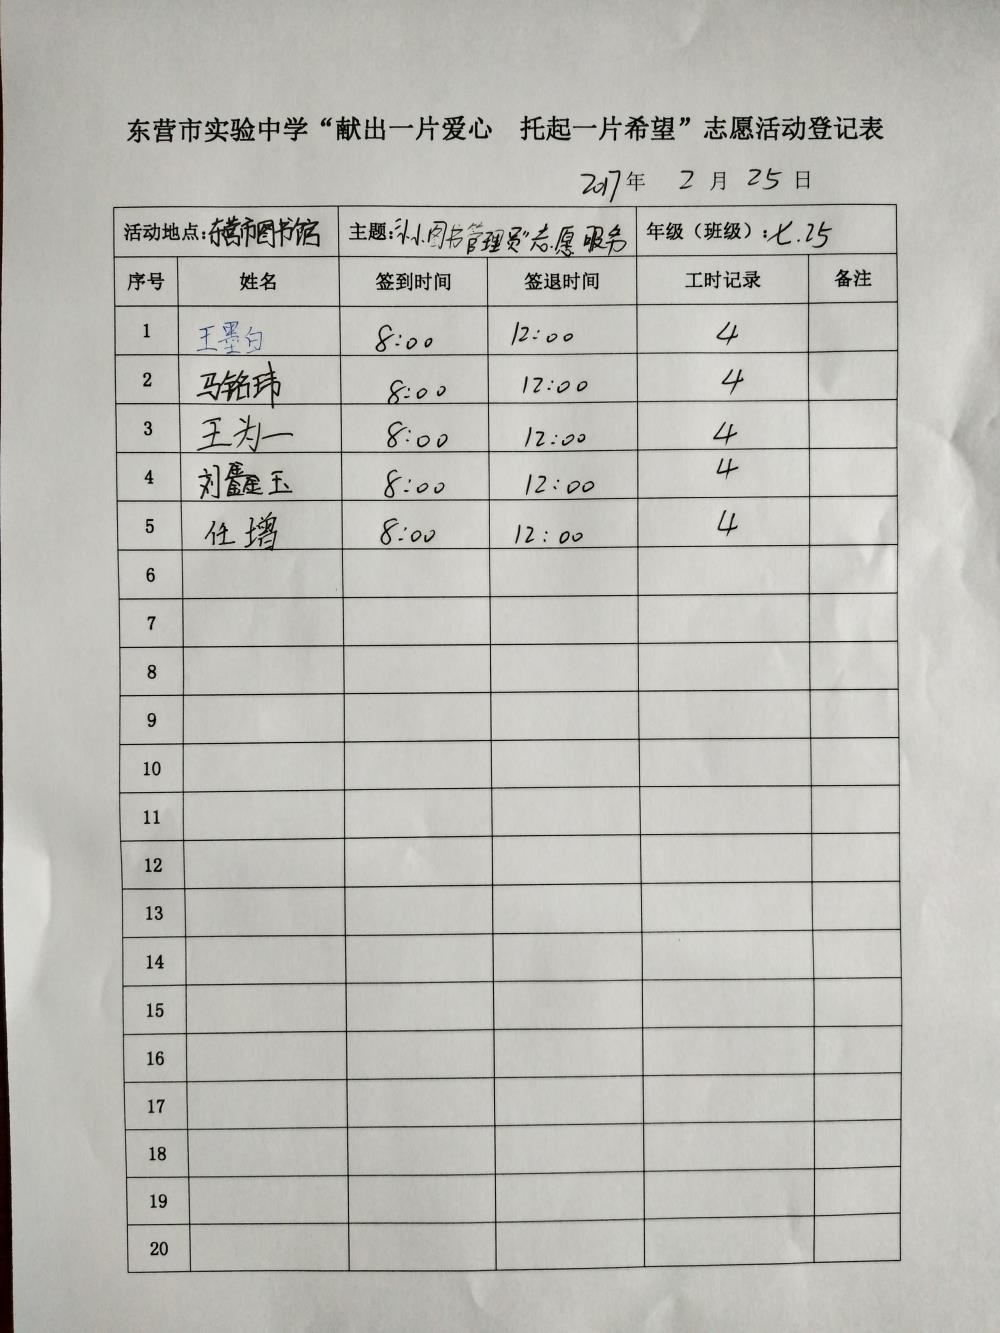 东营市实验中学“献出一片爱心 托起一片希望”志愿活动登记表
2017年 2 月 25 日
活动地点:东营市图书馆 主题:“小小图书管理员”志愿服务 年级（班级）:七.25
序号 姓名 签到时间 签退时间 工时记录 备注
1 王墨白 8:00 12:00 4
2 马铭玮 8:00 12:00 4
3 王为一 8:00 12:00 4
4 刘鑫玉 8:00 12:00 4
5 任增 8:00 12:00 4
6
7
8
9
10
11
12
13
14
15
16
17
18
19
20